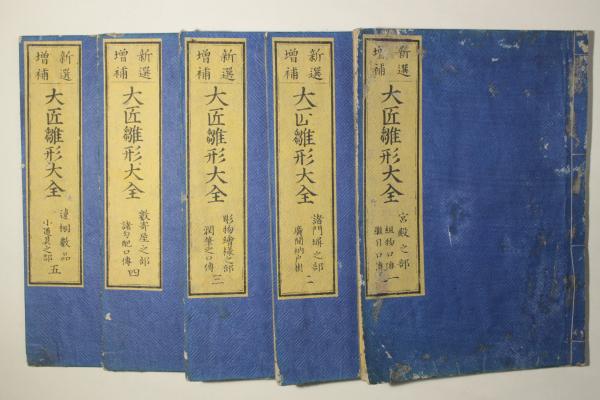 新選
増補
大匠雛形大全
宮殿之部
組物口傳
雛引口傳
一
新選
増補
大匠雛形大全
諸門塀之部
廣間納戸樹
二
新選
増補
大匠雛形大全
彫物繪様之部
潤筆之口傳
三
新選
増補
大匠雛形大全
數寄屋之部
諸勾配口傳
四
新選
増補
大匠雛形大全
違棚數品
小道具之部
五